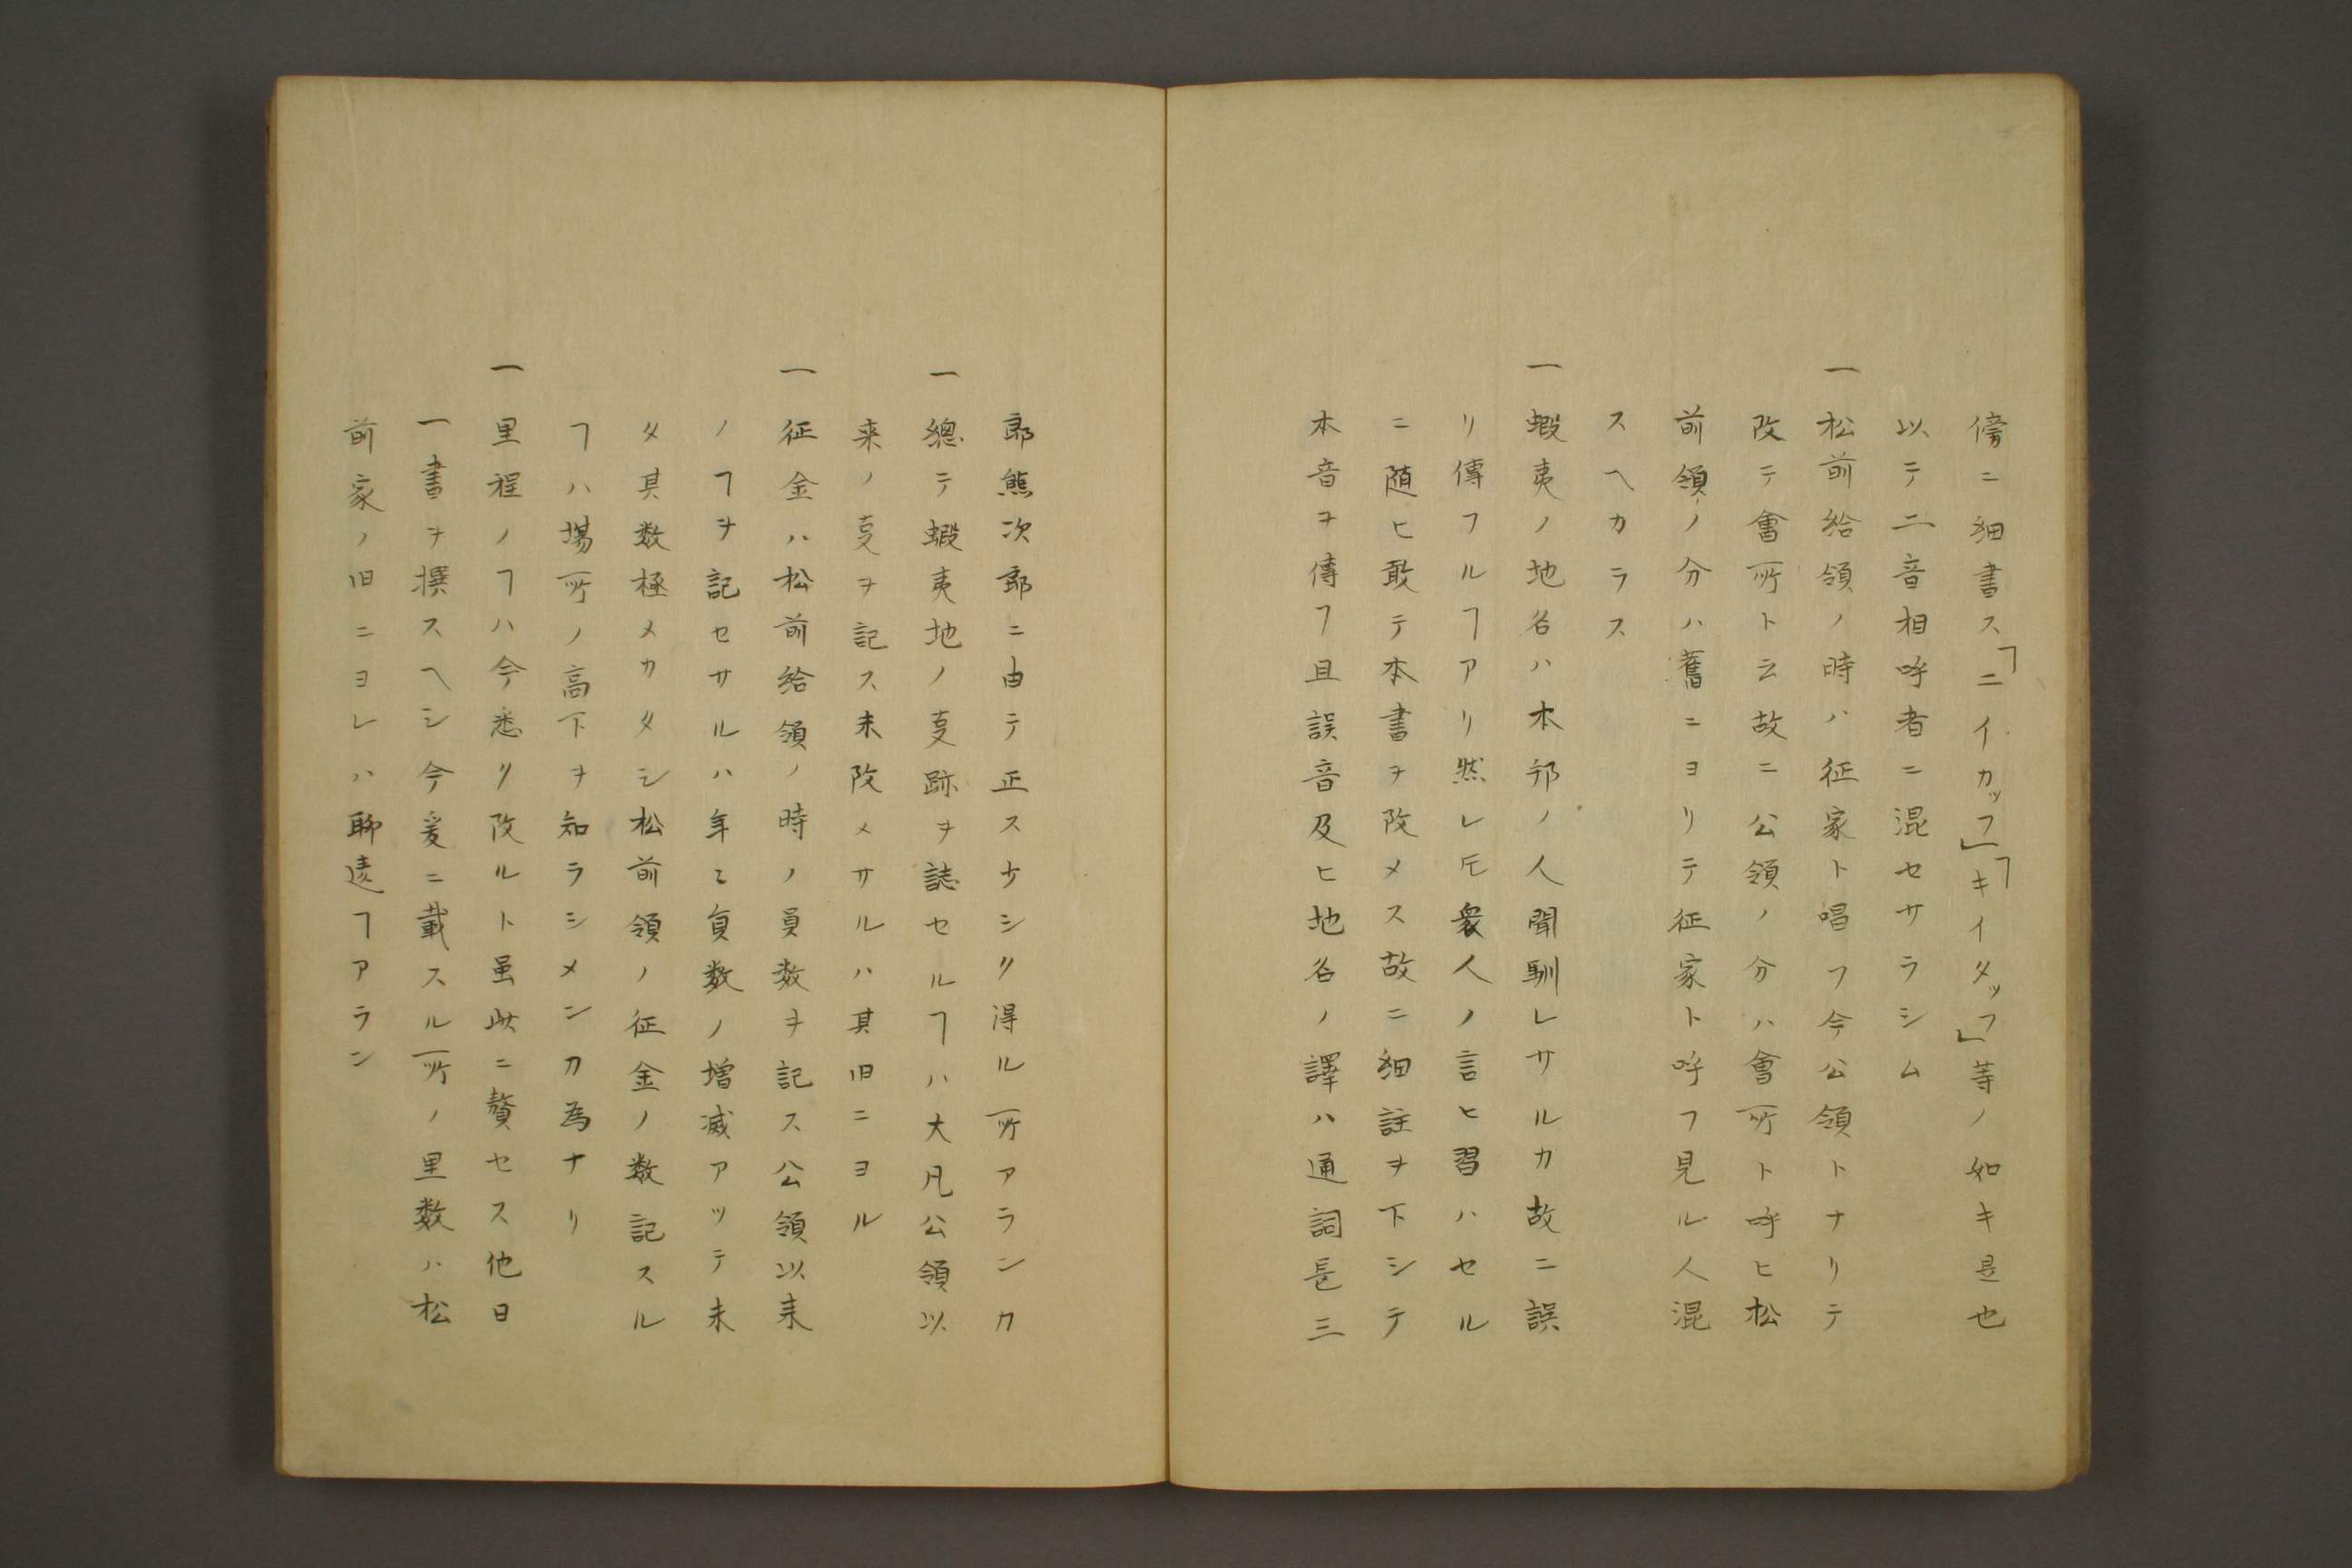 傍ニ細書ス「ニイカッフ」「キイタッフ」等ノ如キ是也
以テ二音相呼者ニ混セサラシム
一松前給領ノ時ハ征家ト唱フ今公領トナリテ
改テ會所ト云故ニ公領ノ分ハ會所ト呼ヒ松
前領ノ分ハ舊ニヨリテ征家ト呼フ見ル人混
スヘカラス
一蝦夷ノ地名ハ本邦ノ人聞馴レサルカ故ニ誤
リ傳フルヿアリ然レ𪜈衆人ノ言ヒ習ハセル
ニ随ヒ敢テ本書ヲ改メス故ニ細註ヲ下シテ
本音ヲ傳フ且誤音及ヒ地名ノ譯ハ通詞長三
郎熊次郎ニ由テ正ス少シク得ル所アランカ
一總テ蝦夷地ノ㕝跡ヲ誌セルヿハ大凡公領以
来ノ㕝ヲ記ス未改メサルハ其旧ニヨル
一征金ハ松前給領ノ時ノ員数ヲ記ス公領以来
ノヿヲ記セサルハ年々員数ノ増减アッテ未
タ其数極メカタシ松前領ノ征金ノ数記スル
ヿハ場所ノ高下ヲ知ラシメンカ為ナリ
一里程ノヿハ今悉ク改ルト虽此ニ贅セス他日
一書ヲ撰スヘシ今爰ニ載スル所ノ里数ハ松
前家ノ旧ニヨレハ聊違ヿアラン